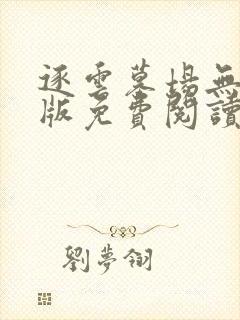 逐雲墓場無
版免費閱讀
劉夢翎